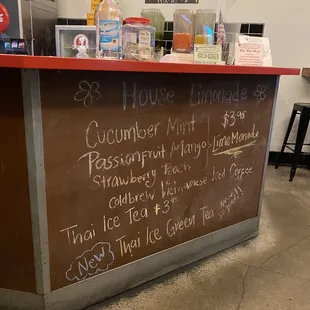 House Limonade
$3.95
Cucumber Mint
LimeMonade
Passionfruit Mango
Strawberry Peach
Coldbrew Vietnamese Iced Coffee
Thai Ice Tea $3.95
New
Thai Ice Green Tea